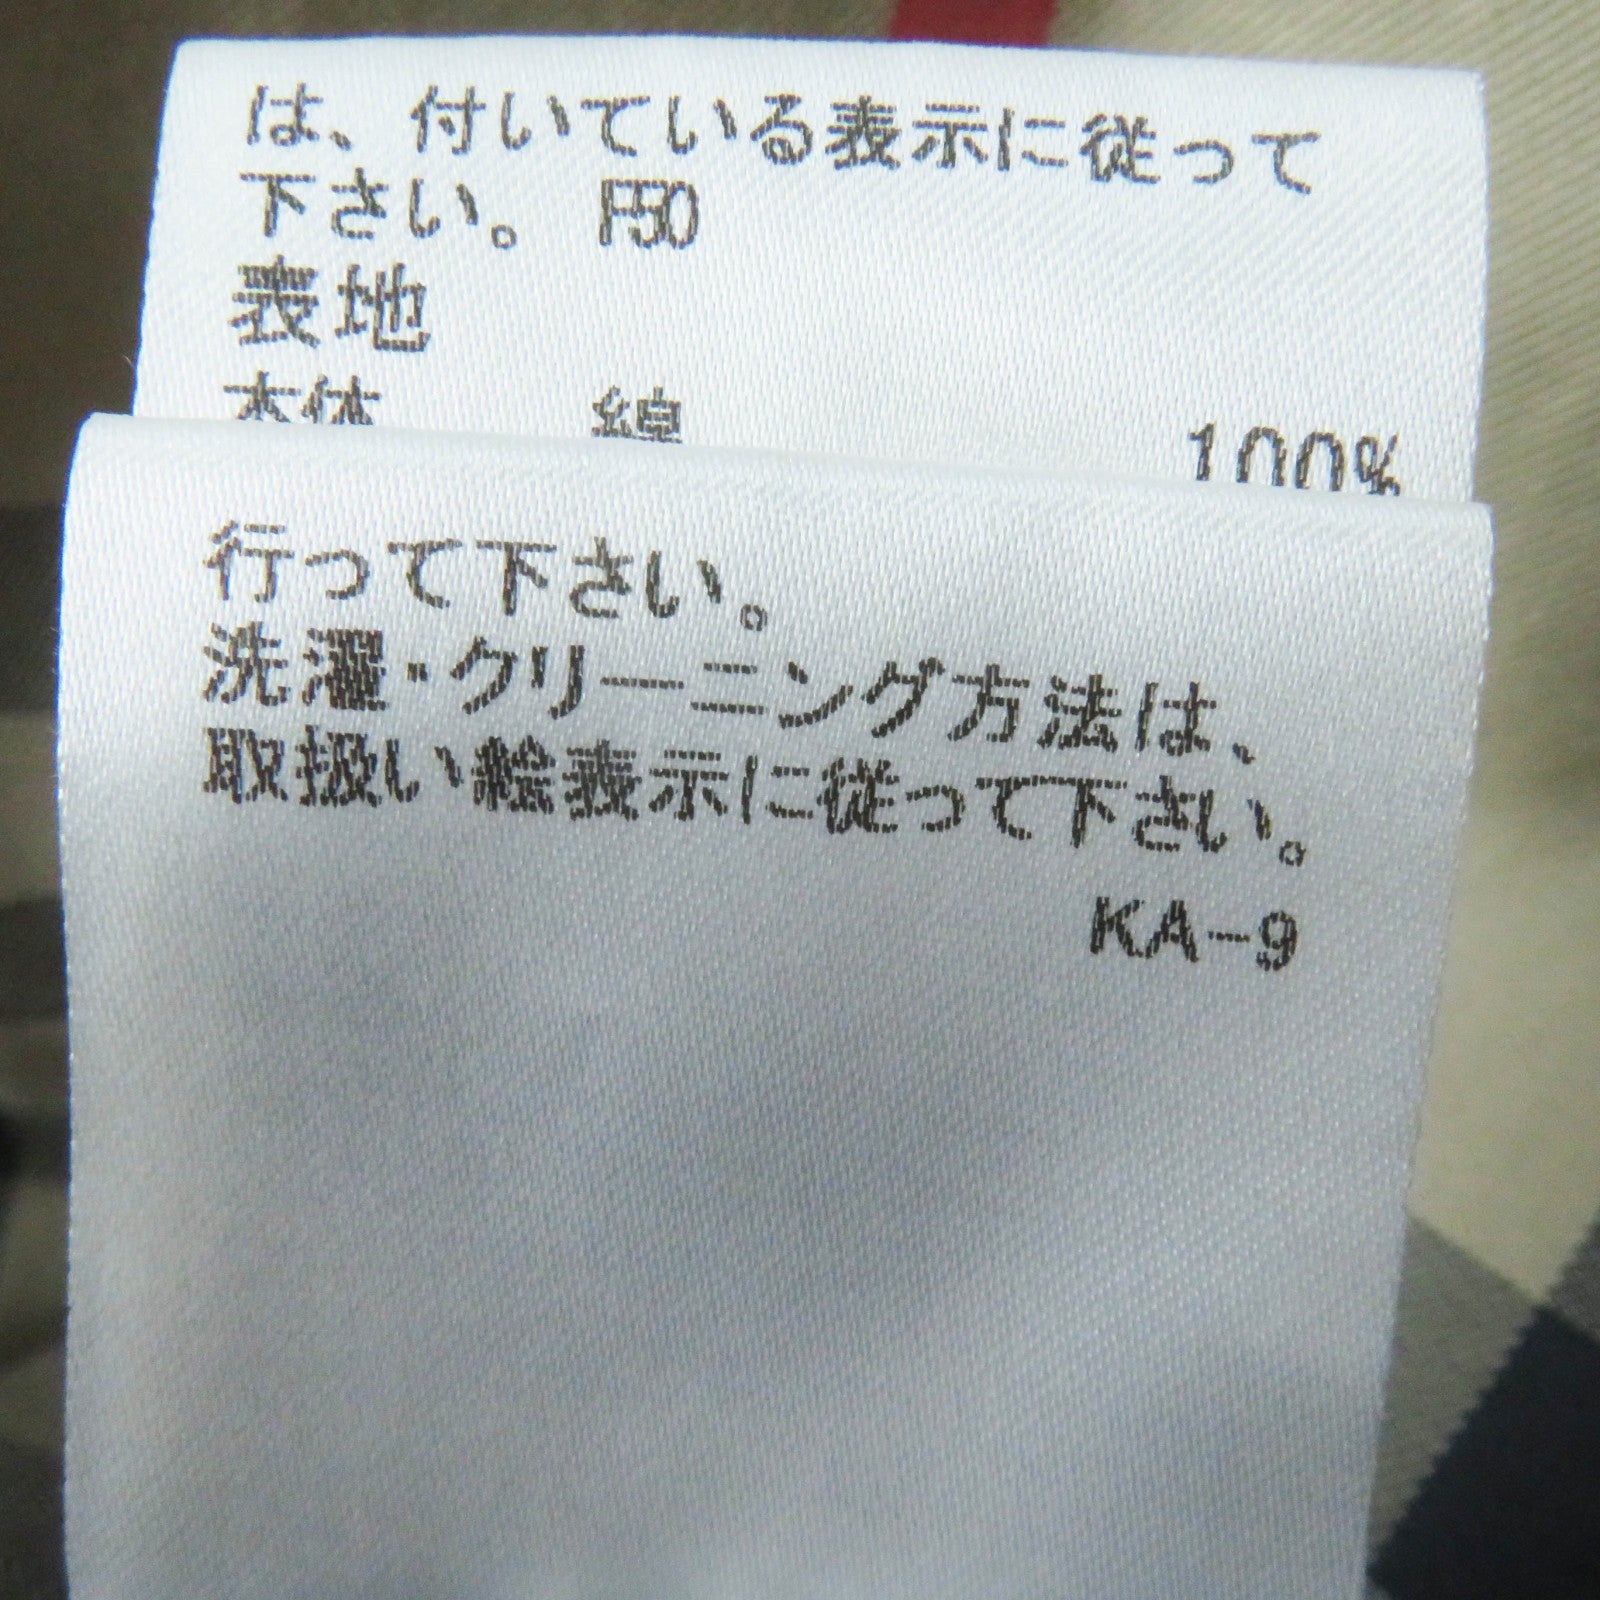 は、付いている表示に従って
下さい。 F50
表地
本体 綿 100%
行って下さい。
洗濯・クリーニング方法は、
取扱い絵表示に従って下さい。
KA-9